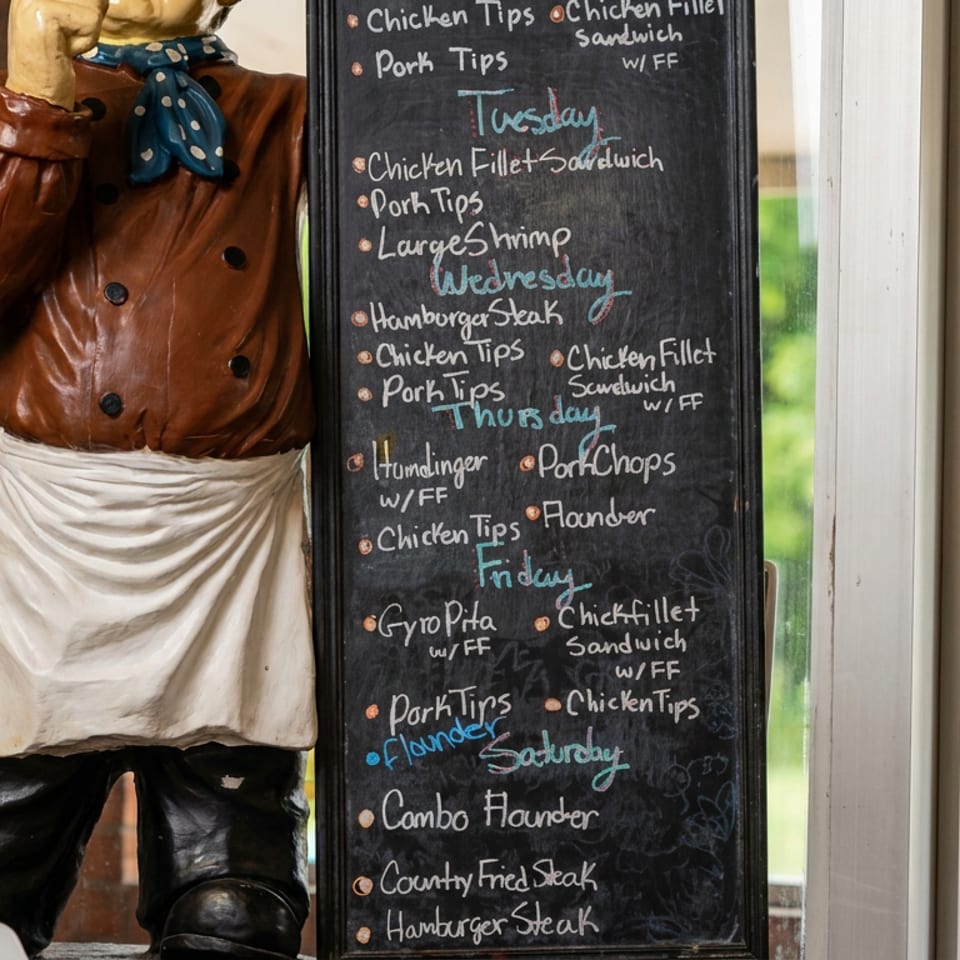 Chicken Tips
Chicken Fillet
Sandwich
w/FF
Pork Tips
Tuesday
Chicken Fillet Sandwich
Pork Tips
Large Shrimp
Wednesday
Hamburger Steak
Chicken Tips
Chicken Fillet
Sandwich
w/FF
Pork Tips
Thursday
Humdinger
w/FF
Pork Chops
Flounder
Chicken Tips
Friday
Gyro Pita
w/FF
Chickfillet
Sandwich
w/FF
Pork Tips
Chicken Tips
Flounder
Saturday
Combo Flounder
Country Fried Steak
Hamburger Steak